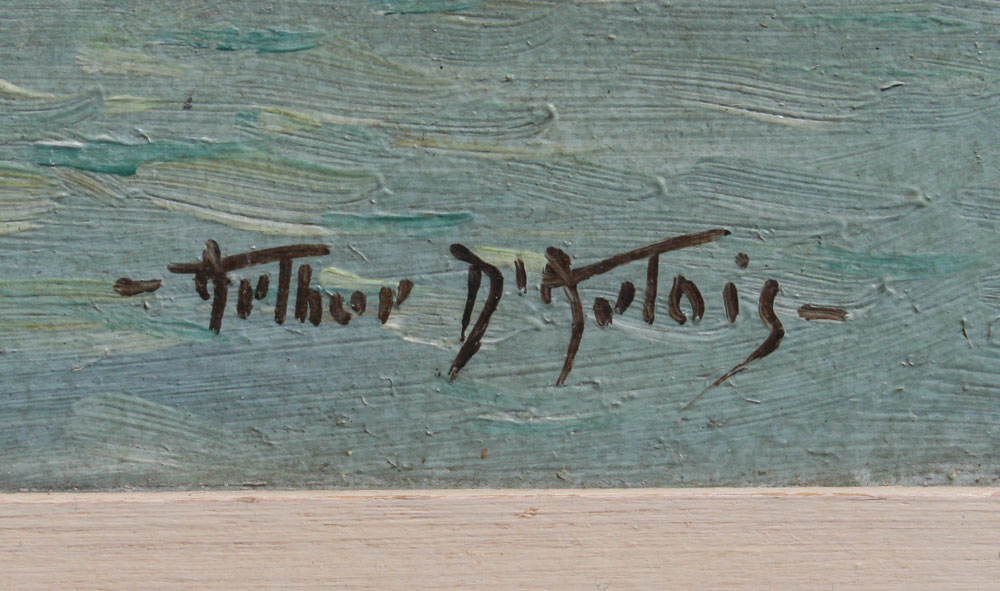 - Arthur D'Artois -